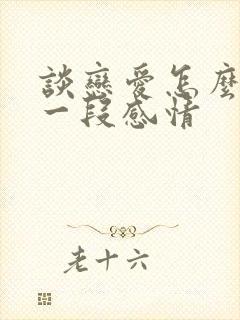 談戀愛怎麼
一段感情
老十六